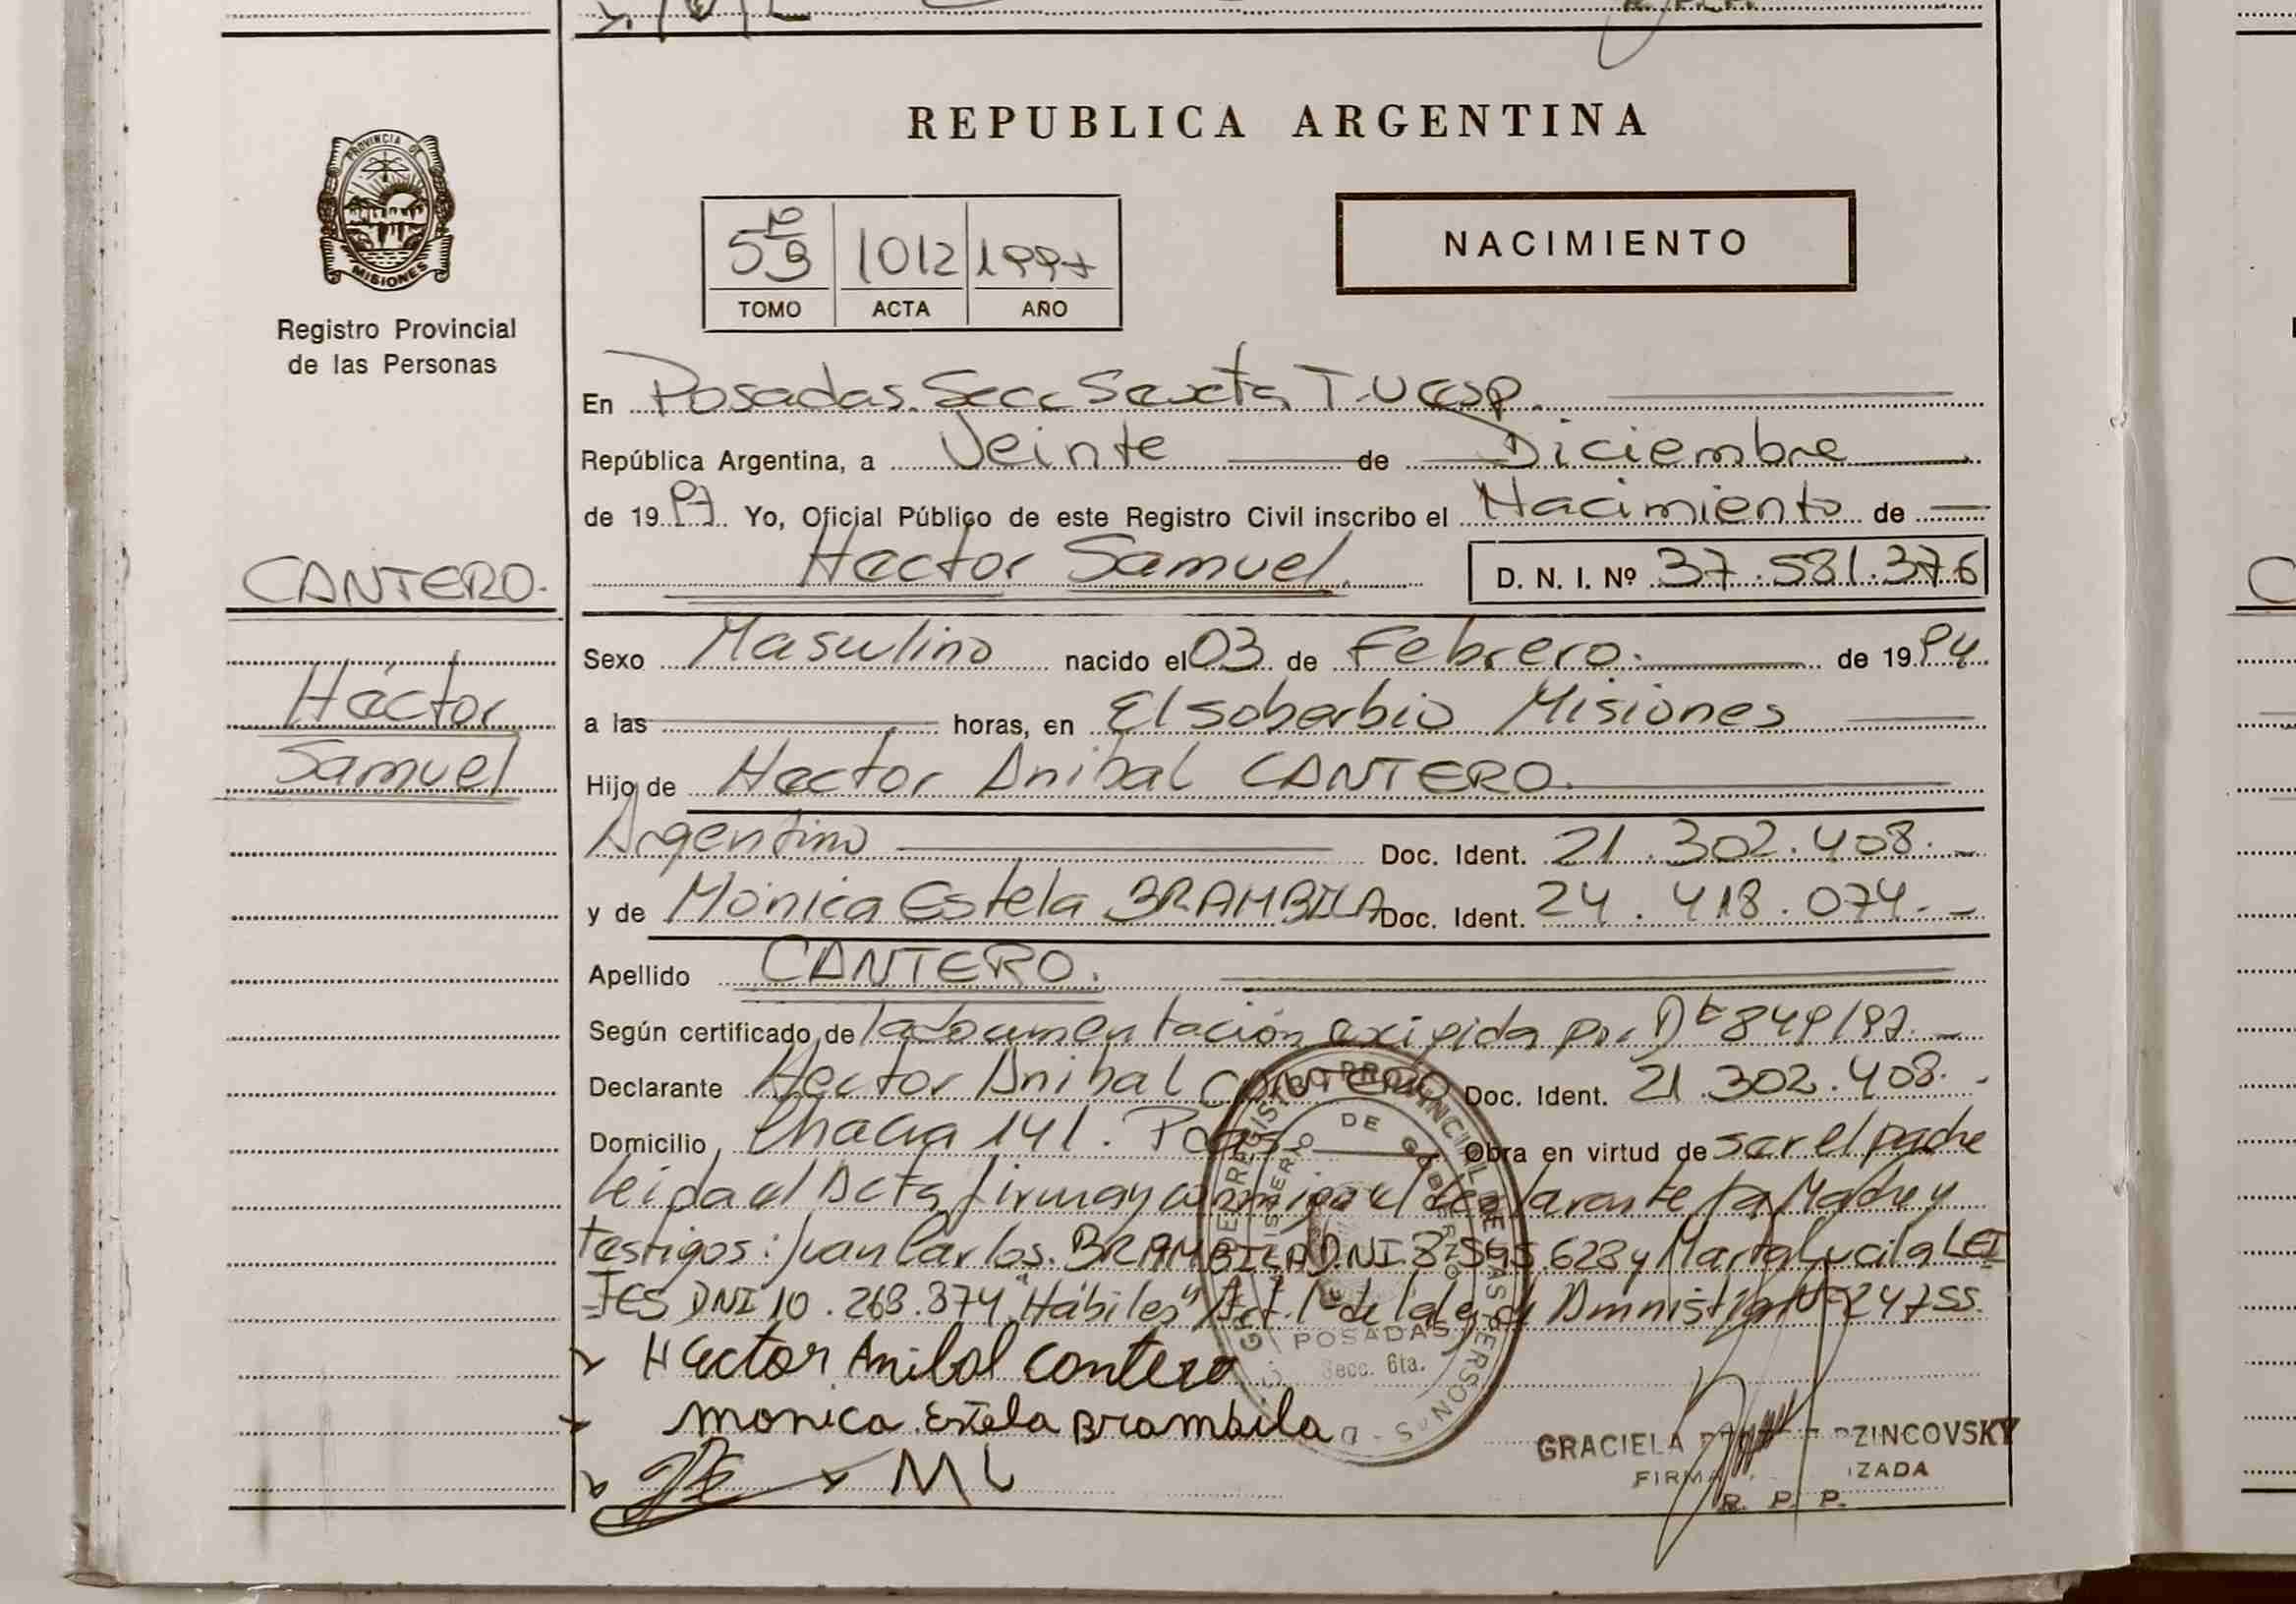 REPUBLICA ARGENTINA
PROVINCIA DE
MISIONES
Registro Provincial
de las Personas
1012 1997
TOMO ACTA AÑO
NACIMIENTO
En Posadas. Secc Sexta T.
República Argentina, a Veinte de Diciembre
de 1997. Yo, Oficial Público de este Registro Civil inscribo el Nacimiento de
Hector Samuel. D. N. I. Nº 37.581.376
CANTERO.
Héctor
Samuel
Sexo Masculino nacido el 03 de Febrero. de 1994
a las horas, en El soberbio Misiones
Hijo de Hector Anibal CANTERO.
Argentino Doc. Ident. 21.302.408.
y de Mónica Estela BRAMBILA Doc. Ident. 24.418.074.
Apellido CANTERO.
Según certificado de la documentación exigida por
Declarante Hector Anibal CANTERO Doc. Ident. 21.302.408.
Domicilio Chacra 141. Obra en virtud de ser el padre
Leida el Acta, firman conmigo el declarante, la Madre y
testigos: Juan Carlos. BRAMBILA D.NI 8.595.628 y Marta Lucila LEI
TES DNI 10.268.874 "Hábiles" Art. 1º de la ley de Amnistia Nº 24755.
Hector Anibal Cantero
monica Estela Brambila
ML
REGISTRO PROVINCIAL DE LAS PERSONAS
MINISTERIO DE GOBIERNO
POSADAS
Secc. 6ta.
GRACIELA
R. P. P.